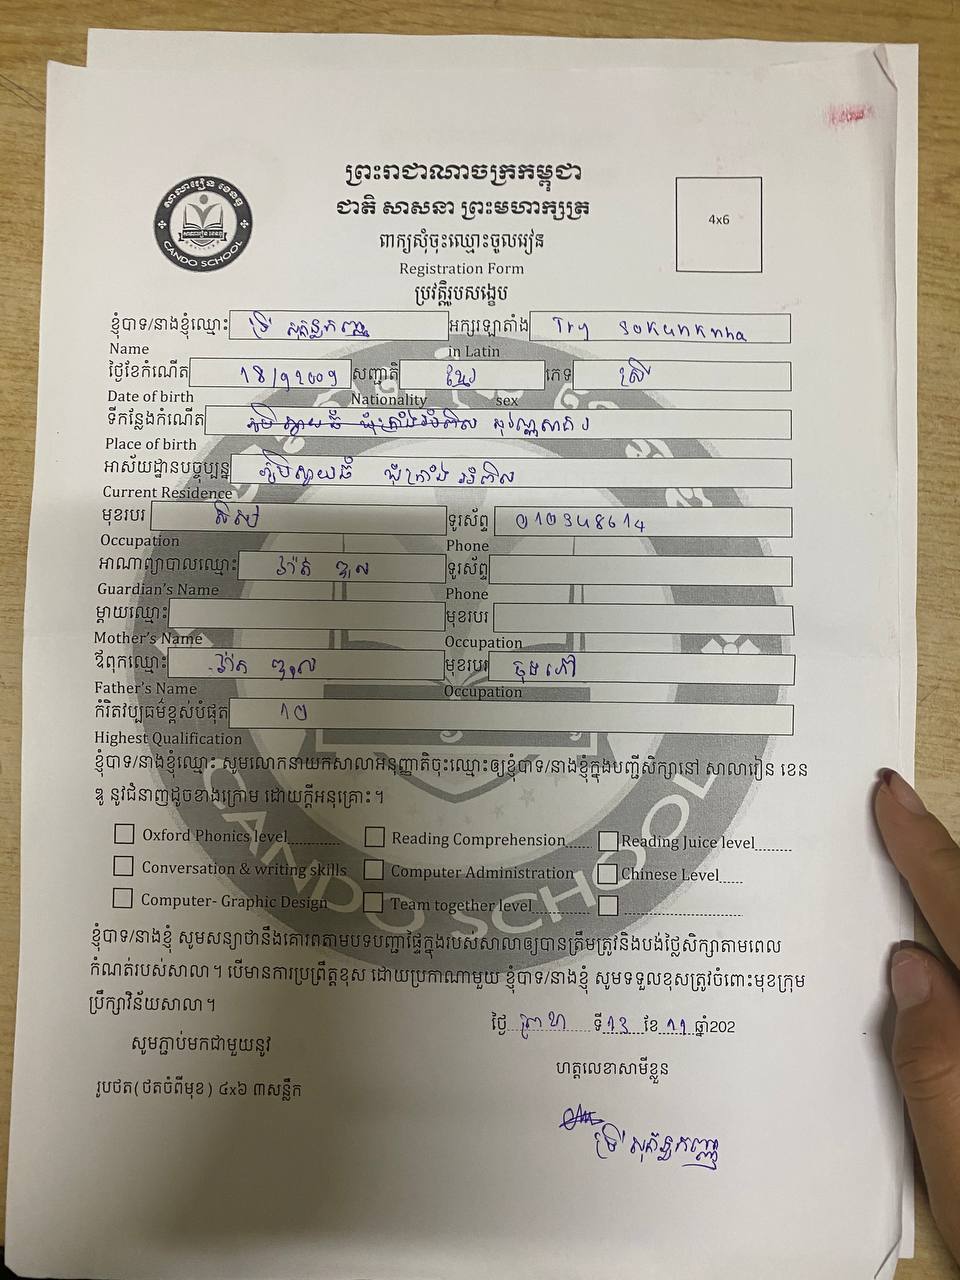 ព្រះរាជាណាចក្រកម្ពុជា
ជាតិ សាសនា ព្រះមហាក្សត្រ
សាលារៀន ខេនឌូ
CANDO SCHOOL
4x6
ពាក្យសុំចុះឈ្មោះចូលរៀន
Registration Form
ប្រវត្តិរូបសង្ខេប
ខ្ញុំបាទ/នាងខ្ញុំឈ្មោះ ទ្រី សុគន្ធកញ្ញា អក្សរឡាតាំង Try sokunknha
Name in Latin
ថ្ងៃខែកំណើត 18/9 2009 សញ្ជាតិ ខ្មែរ ភេទ ស្រី
Date of birth Nationality sex
ទីកន្លែងកំណើត
Place of birth
អាស័យដ្ឋានបច្ចុប្បន្ន ភូមិស្វាយធំ ឃុំក្រាំងអំពិល
Current Residence
មុខរបរ សិស្ស ទូរស័ព្ទ 010348614
Occupation Phone
អាណាព្យាបាលឈ្មោះ ទូរស័ព្ទ
Guardian's Name Phone
ម្តាយឈ្មោះ មុខរបរ
Mother's Name Occupation
ឪពុកឈ្មោះ មុខរបរ ចុងភៅ
Father's Name Occupation
កំរិតវប្បធម៌ខ្ពស់បំផុត 10
Highest Qualification
ខ្ញុំបាទ/នាងខ្ញុំឈ្មោះ សូមលោកនាយកសាលាអនុញ្ញាតិចុះឈ្មោះឲ្យខ្ញុំបាទ/នាងខ្ញុំក្នុងបញ្ជីសិក្សានៅ សាលារៀន ខេន
ឌូ នូវជំនាញដូចខាងក្រោម ដោយក្តីអនុគ្រោះ។
Oxford Phonics level............ Reading Comprehension...... Reading Juice level........
Conversation & writing skills Computer Administration Chinese Level.....
Computer- Graphic Design Team together level............
ខ្ញុំបាទ/នាងខ្ញុំ សូមសន្យាថានឹងគោរពតាមបទបញ្ជាផ្ទៃក្នុងរបស់សាលាឲ្យបានត្រឹមត្រូវនិងបង់ថ្លៃសិក្សាតាមពេល
កំណត់របស់សាលា។ បើមានការប្រព្រឹត្តខុស ដោយប្រការណាមួយ ខ្ញុំបាទ/នាងខ្ញុំ សូមទទួលខុសត្រូវចំពោះមុខក្រុម
ប្រឹក្សាវិន័យសាលា។
ថ្ងៃ ព្រហ ទី 13 ខែ 11 ឆ្នាំ202
សូមភ្ជាប់មកជាមួយនូវ
ហត្ថលេខាសាមីខ្លួន
រូបថត(ថតចំពីមុខ) ៤x៦ ៣សន្លឹក
ទ្រី សុគន្ធកញ្ញា